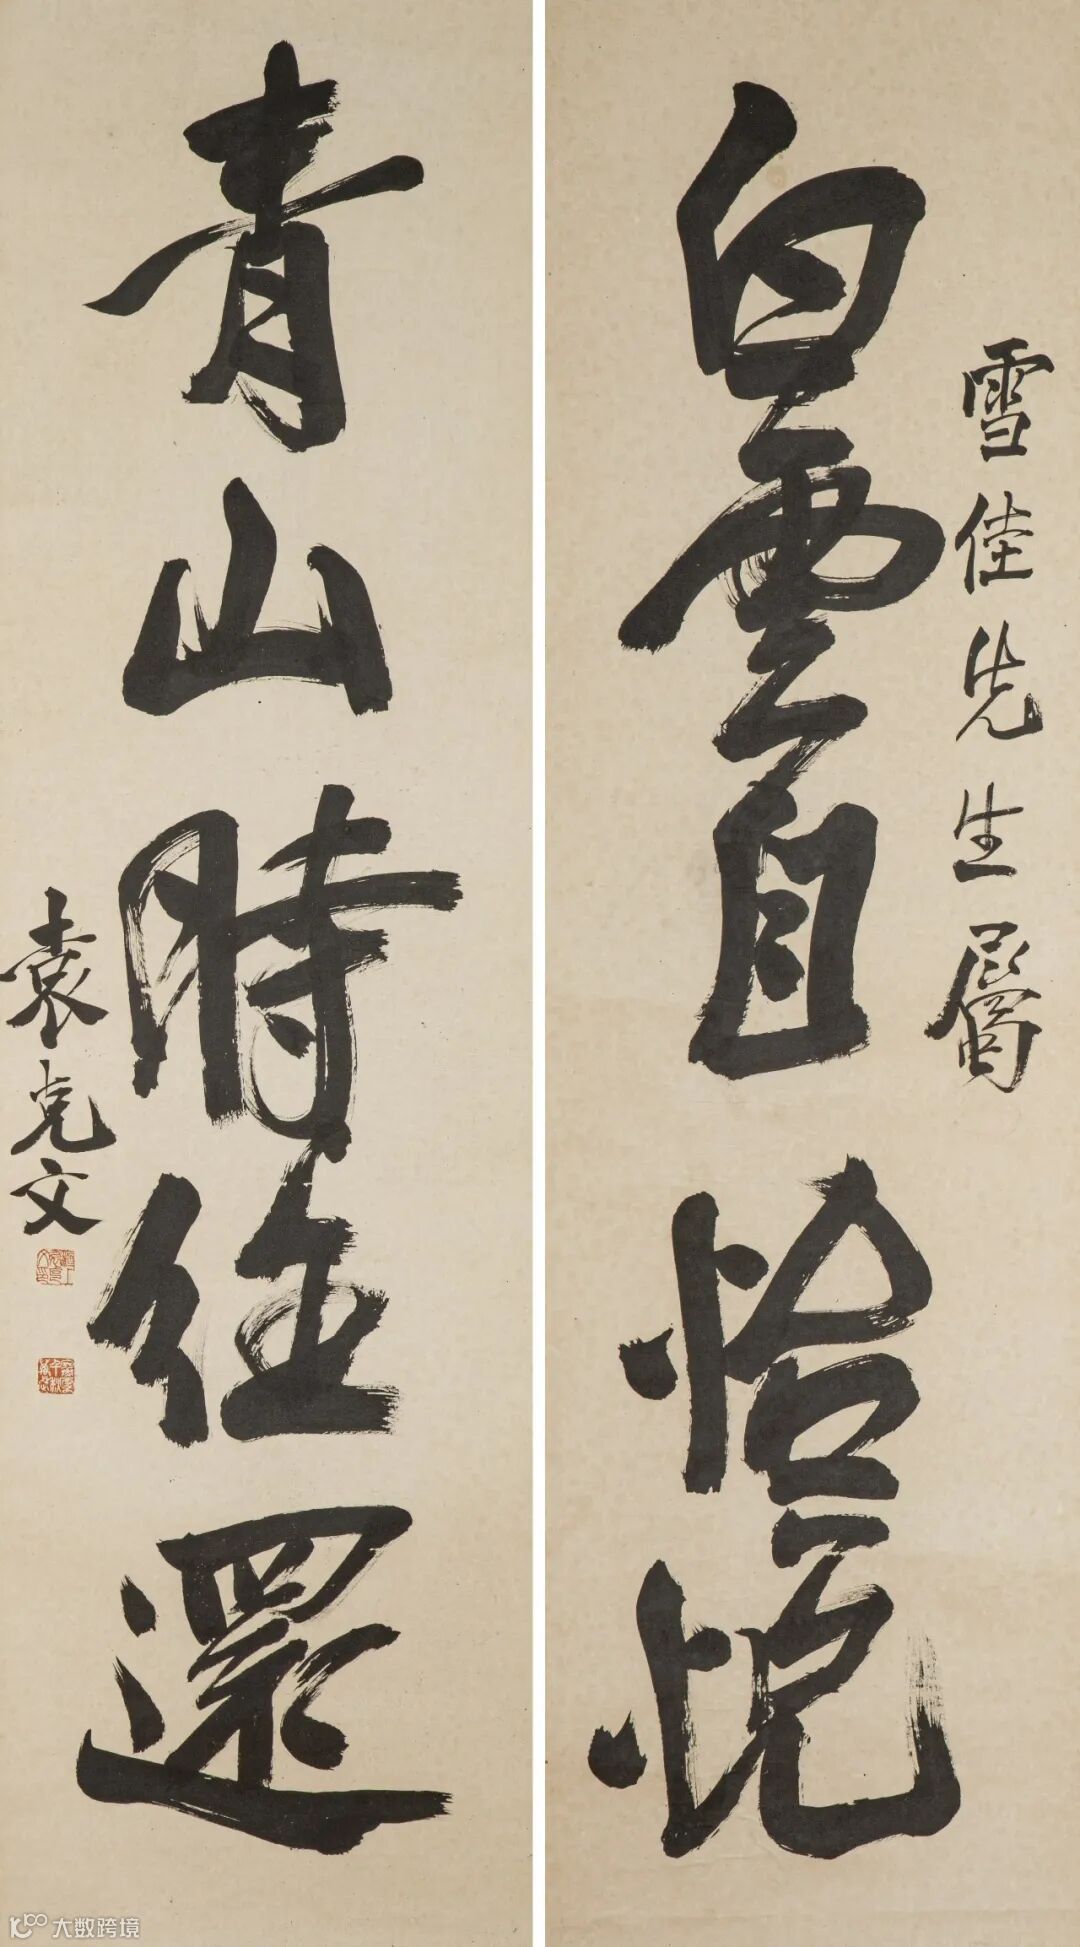 雪佳先生屬
白雲自怡悅
青山時往還
袁克文
大数跨境